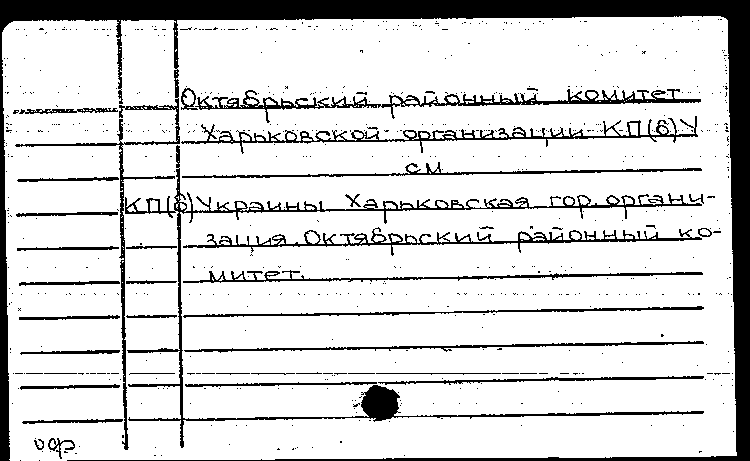 Октябрьский районный комитет
Харьковской организации КП(б)У
см
КП(б)Украины Харьковская гор. органи-
зация. Октябрьский районный ко-
митет.